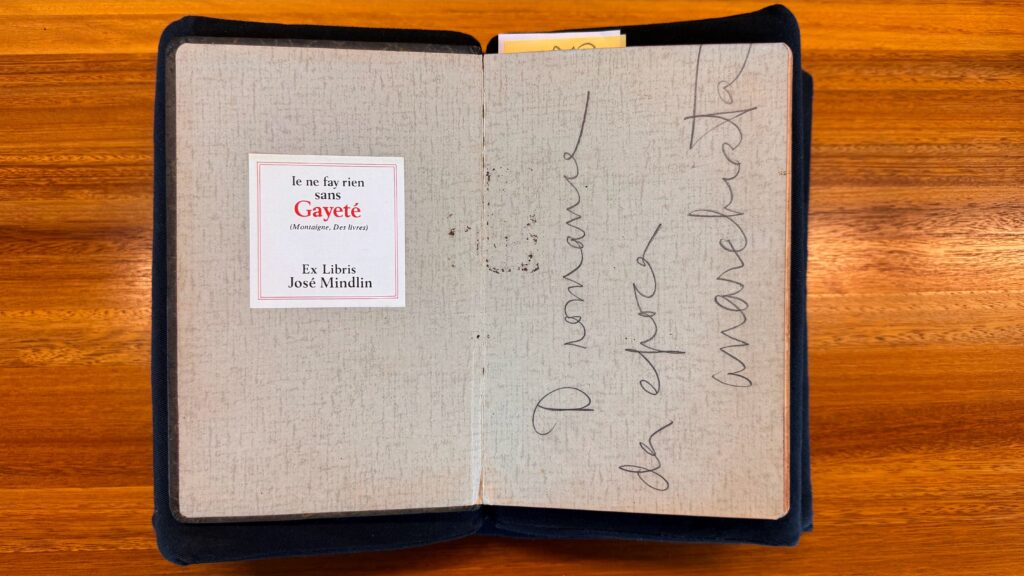 Ie ne fay rien
sans
Gayeté
(Montaigne, Des livres)
Ex Libris
José Mindlin
O romance
da epoca
anarchista